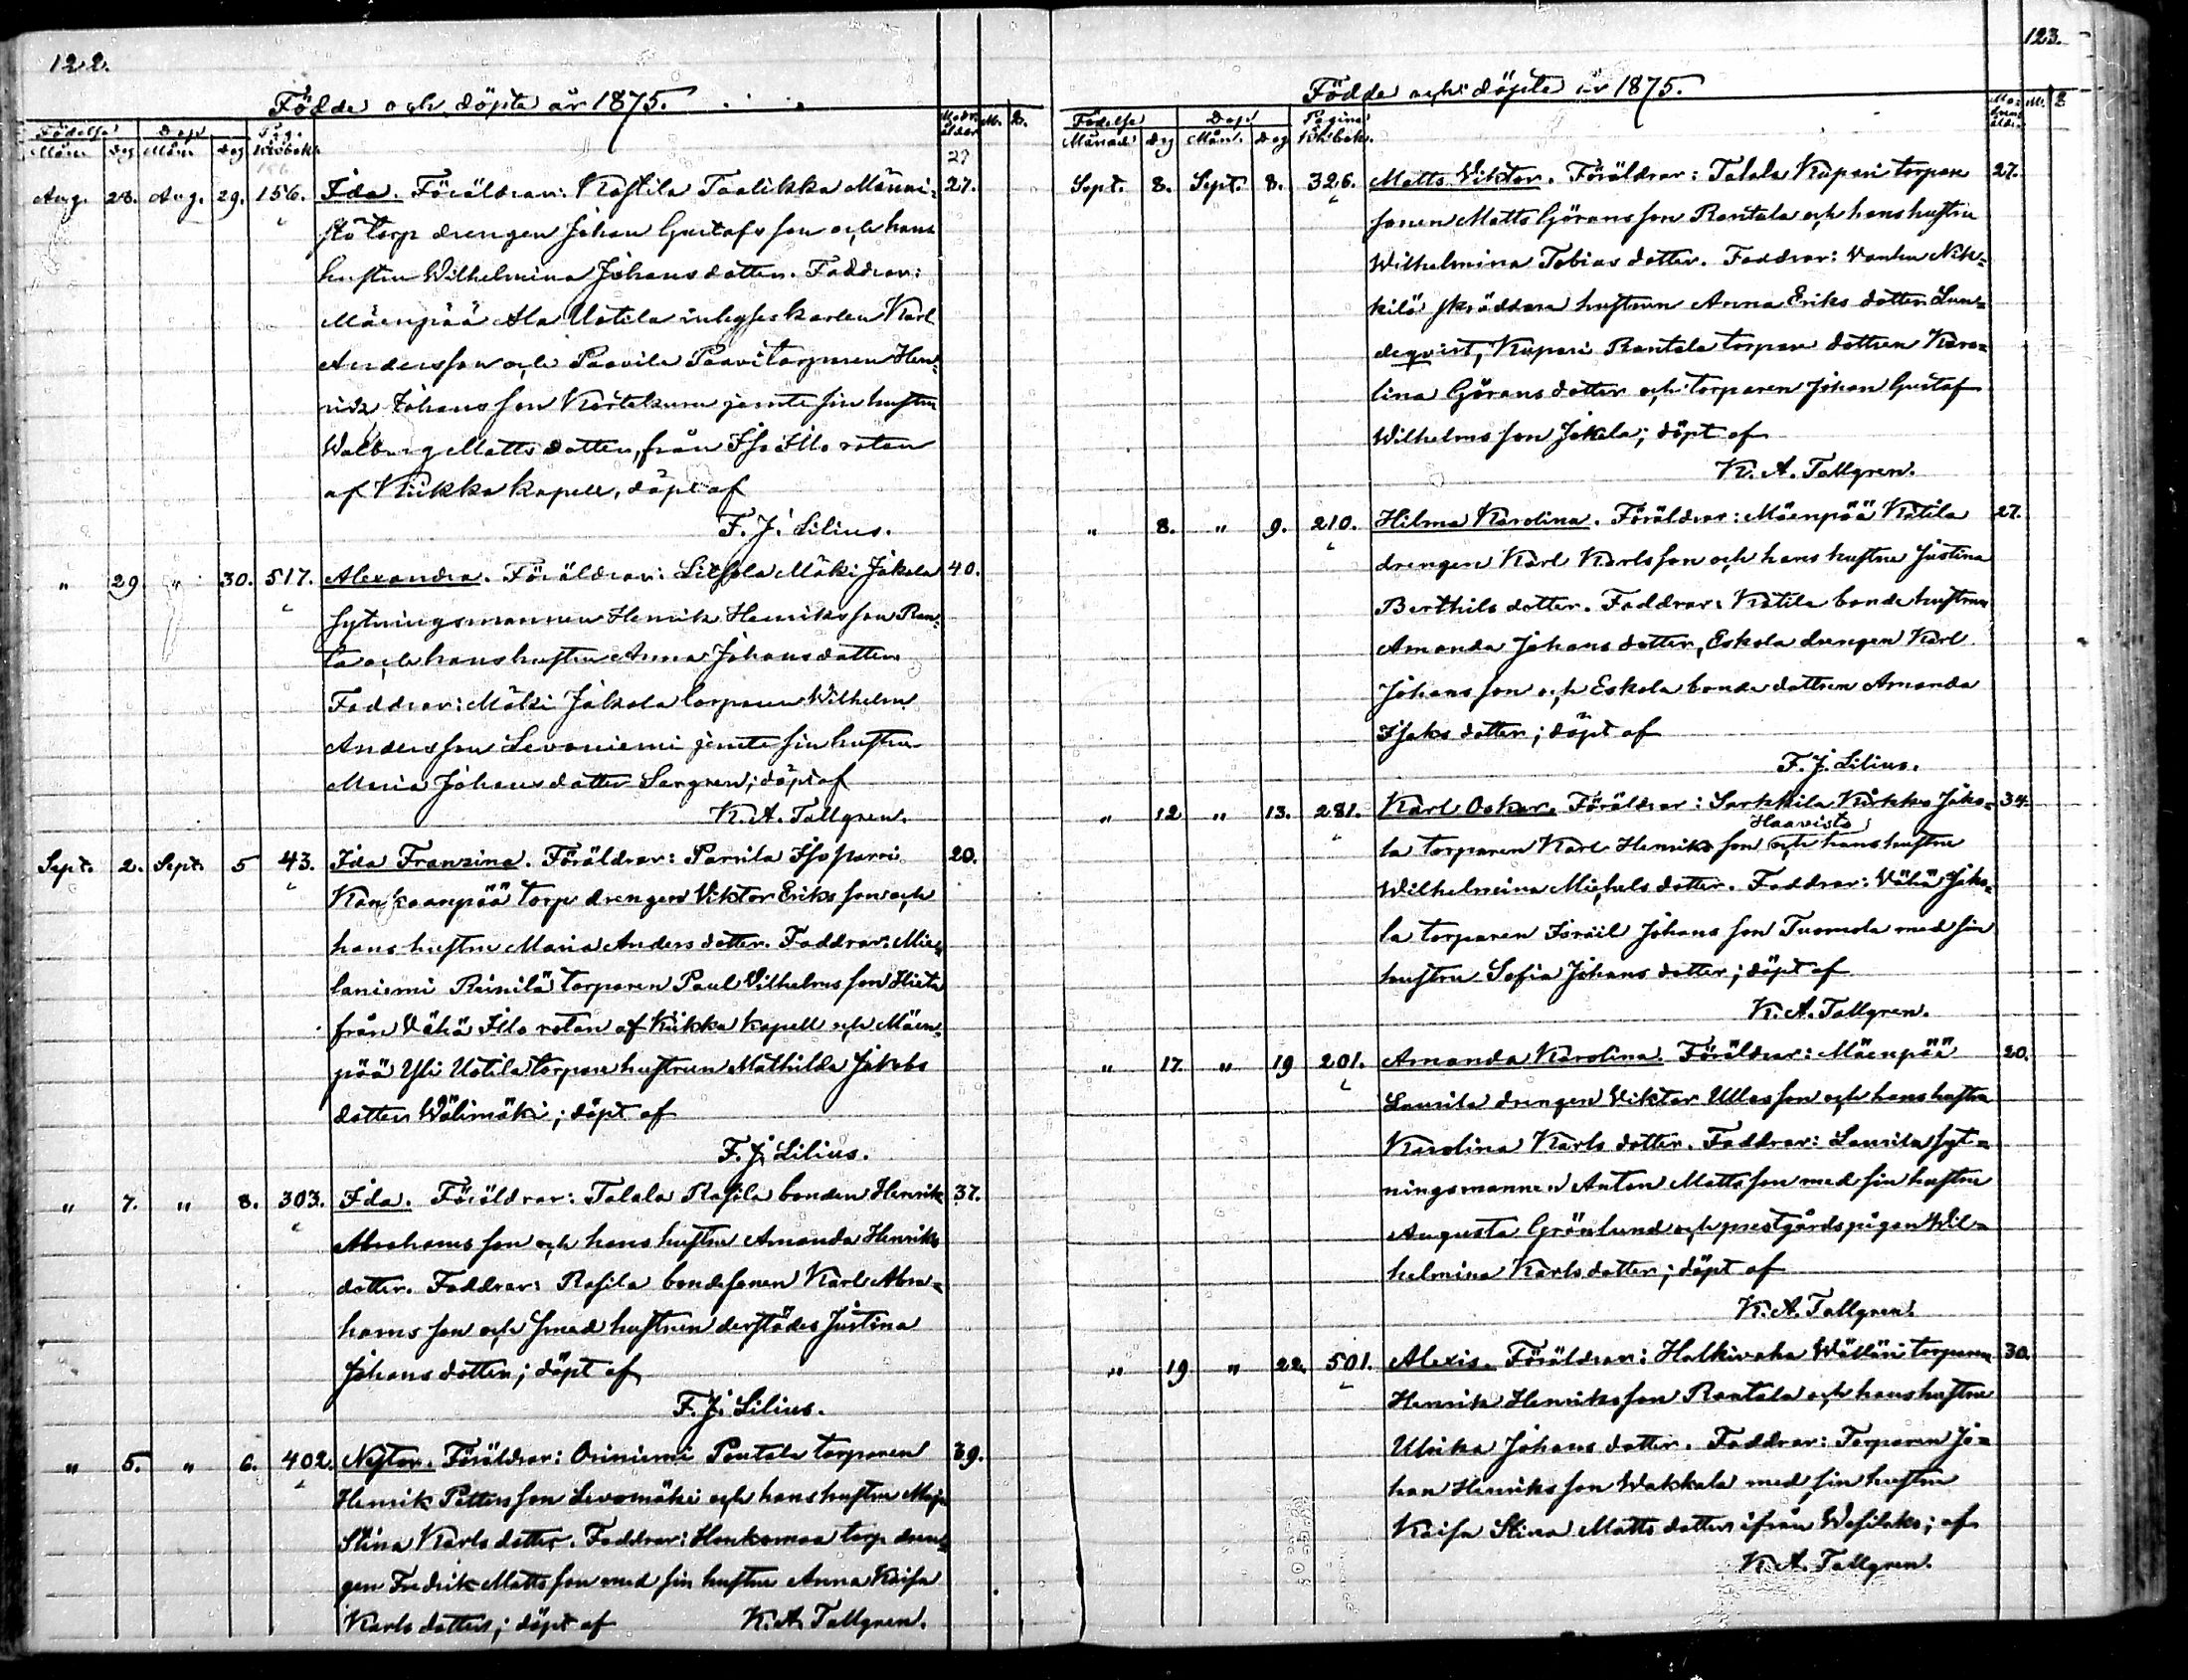 122.
Födde och döpte år 1875.
Födelse Dop Pag. Modr. ålder M. Q.
Mån Dag Mån Dag Kb.bok.
27
Aug. 28. Aug. 29. 156. Ida. Föräldrar: Kostila Taalikka Männi- 27.
stö torp drengen Johan Gustafsson och hans
hustru Wilhelmina Johansdotter. Faddrar:
Mäenpää Ala Uotila inhyseskarlen Karl
Andersson och Paavila Paavi torparen Hen-
rik Johansson Kortekuru jemte sin hustru
Walborg Matts dotter, från Iso Illo rotan
af Kiikka kapell, döpt af
F. J. Lilius.
" 29 " 30. 517. Alexandra. Föräldrar: Litsola Mäki Jakola 40.
sytningsmannen Henrik Henriksson Ran-
ta och hans hustru Anna Johansdotter
Faddrar: Mäki Jakola torparen Wilhelm
Andersson Levoniemi jemte sin hustru
Maria Johansdotter Sergren; döpt af
K. A. Tallgren.
Sept. 2. Sept. 5 43. Ida Franzina. Föräldrar: Parsila Isoparri 20.
Kankaanpää torp drengen Viktor Eriksson och
hans hustru Maria Anders dotter. Faddrar: Mie-
laniemi Reinilä torparen Paul Vilhelmsson Hieta
från Vähä Illo rotan af Kiikka kapell och Mäen-
pää Yli Uotila torpare hustrun Mathilda Jakobs
dotter Wälimäki; döpt af
F. J. Lilius.
" 7. " 8. 303. Ida. Föräldrar: Talala Rasila bonden Henrik 37.
Abrahamsson och hans hustru Amanda Henriks
dotter. Faddrar: Rasila bondesonen Karl Abra-
hamsson och smed hustrun derstädes Justina
Johansdotter; döpt af
F. J. Lilius.
" 5. " 6. 402. Nestor. Föräldrar: Oriniemi Pentala torparen 39.
Henrik Pettersson Levomäki och hans hustru Maja
Stina Karls dotter. Faddrar: Honkomaa torp dren-
gen Fredrik Mattsson med sin hustru Anna Kaisa
Karls dotter; döpt af K. A. Tallgren.
123.
Födde och döpte år 1875.
Födelse Dop Pagina M. Q
Månad dag Mån. Dag Kb.bok.
Sept. 8. Sept. 8. 326. Matts Viktor. Föräldrar: Talala Kupari torpare 27.
sonen Matts Göransson Rantala och hans hustru
Wilhelmina Tobias dotter. Faddrar: Nik-
kilä skräddare hustrun Anna Eriks dotter Lun-
deqvist, Kupari Rantala torpare dottren Karo-
lina Görans dotter och torparen Johan Gustaf
Wilhelmsson Jokela; döpt af
K. A. Tallgren.
" 8. " 9. 210. Hilma Karolina. Föräldrar: Mäenpää Katila 27.
drengen Karl Karlsson och hans hustru Justina
Berthils dotter. Faddrar: Katila bonde hustrun
Amanda Johans dotter, Eskola drengen Karl
Johansson och Eskola bonde dottren Amanda
Isaks dotter; döpt af
F. J. Lilius.
" 12 " 13. 281. Karl Oskar. Föräldrar: Sarkkila Kirkko Jako- 34.
Haavisto
la torparen Karl Henriksson och hans hustru
Wilhelmina Michels dotter. Faddrar: Vähä Jako-
la torparen Israil Johansson Tuomola med sin
hustru Sofia Johans dotter; döpt af
K. A. Tallgren.
" 17. " 19 201. Amanda Karolina. Föräldrar: Mäenpää 20.
Laurila drengen Viktor Ullasson och hans hustru
Karolina Karls dotter. Faddrar: Laurila syt-
ningsmannen Anton Mattsson med sin hustru
Augusta Grönlund och prestgårdspigan Wil-
helmina Karlsdotter; döpt af
K. A. Tallgren.
" 19 " 22. 501. Alexis. Föräldrar: Halkivaha Wälläri torparen 30.
Henrik Henriksson Rantala och hans hustru
Ulrika Johans dotter. Faddrar: Torparen Jo-
han Henriksson Wakkala med sin hustru
Kaisa Stina Matts dotter ifrån Wesilaks; af
K. A. Tallgren.